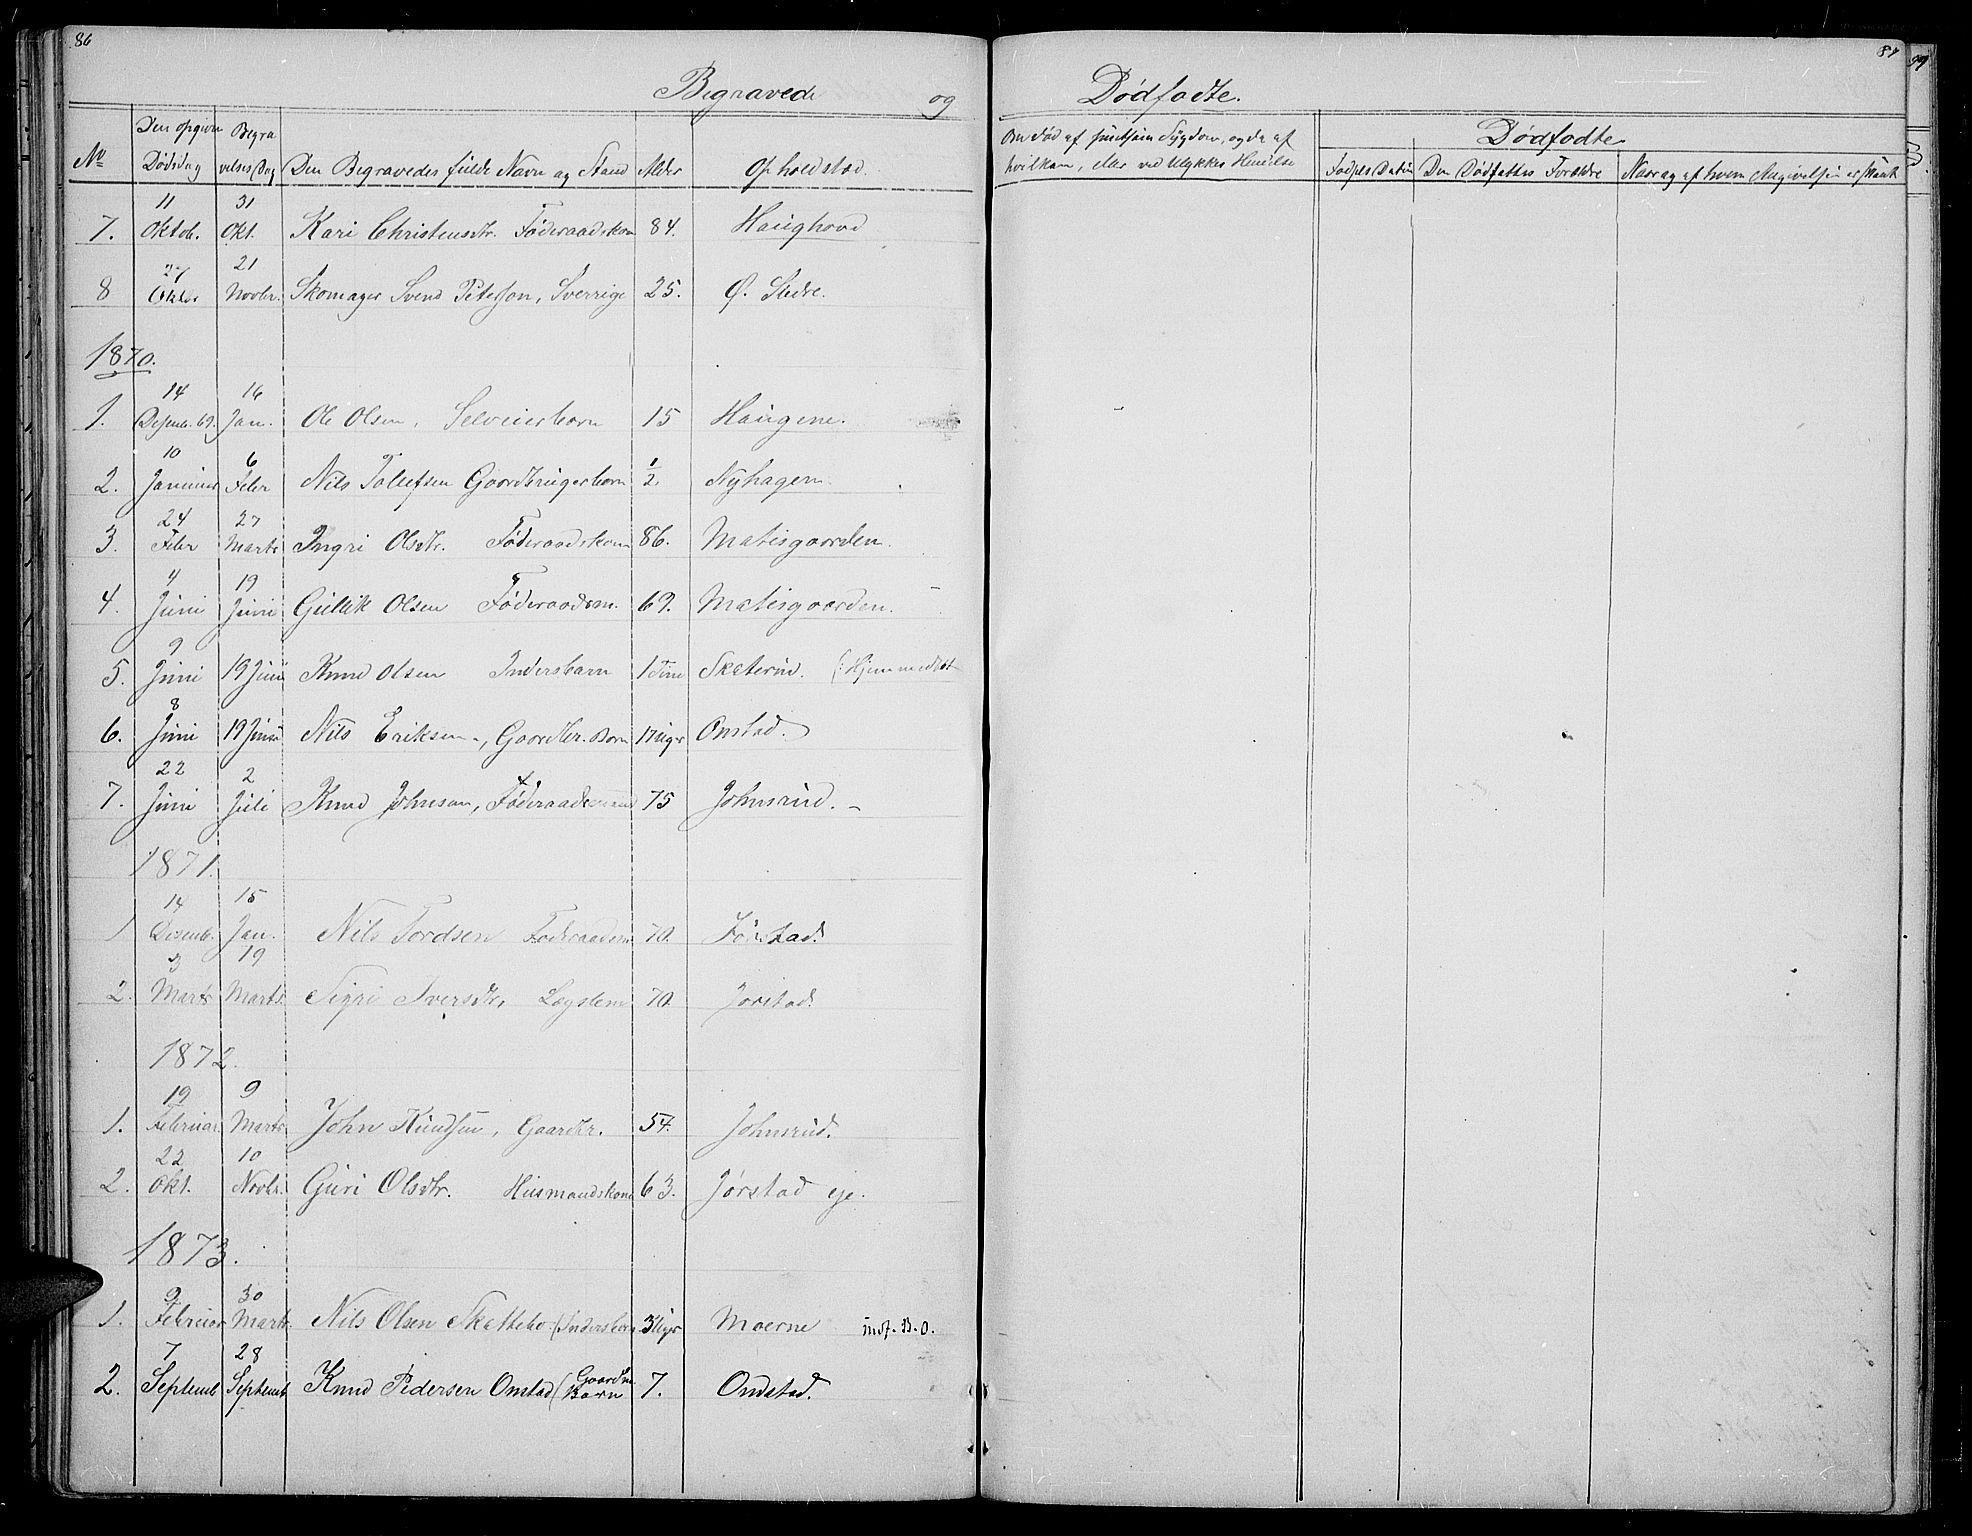 86
Begravede og Dødfødte.
87
99
No
Den opgivne Dødsdag
Begravelses Dag
Den Begravedes fulde Navn og Stand
Alder
Opholdsted.
Om død af smitsom Sygdom, og da af
hvilken, eller ved Ulykkes Hendelse
Dødfødte
Fødsels Datum
Den Dødfødtes Forældre
Naar og af hvem Angivelsen er skeet
11 31
7. Oktob. Okt. Kari Christensdtr. Føderaadskone 84. Haughovd
27 21
8 Oktbr Novbr. Skomager Svend Petersson, Sverrige 25. Ø. Slidre.
1870.
14 16
1. Desemb. 69. Jan. Ole Olsen, Selveierbarn 15 Haugene.
10 6
2. Januar Febr Nils Tollefsen Gaardbrugerbarn 1/2 Nyhagen
24 27
3. Febr Marts Ingri Olsdtr. Føderaadskone 86. Matisgaarden.
4 19
4. Juni Juni Gullik Olsen Føderaadsm. 69. Matisgaarden.
9
5. Juni 19 Juni Knud Olsen Inderstbarn 1 Time Skaterud. (: Hjemmedøbt
8
6. Juni 19 Juni Nils Eriksen, Gaardbr. Barn 17 Uger Onstad.
22 2
7. Juni Juli Knud Johnsen, Føderaadsmand 75 Johnsrud.
1871.
14 15
1 Desemb. Jan. Nils Tordsen Føderaadsm 70. Jørstad.
3 19
2. Marts Marts. Sigri Iversdtr, Lægslem 70. Jørstad.
1872.
19 9
1. Februar Marts John Knudsen, Gaardbr. 54. Johnsrud.
22 10
2. Okt. Novbr. Guri Olsdtr. Husmandskone 63. Jørstad eje.
1873.
9 30
1. Februar Marts. Nils Olsen Skattebo (Inderstbarn 3 Uger Moerne indf. B. O.
7 28
2. Septemb Septemb Knud Pedersen Onstad (Gaardm. Barn 7. Ondstad.